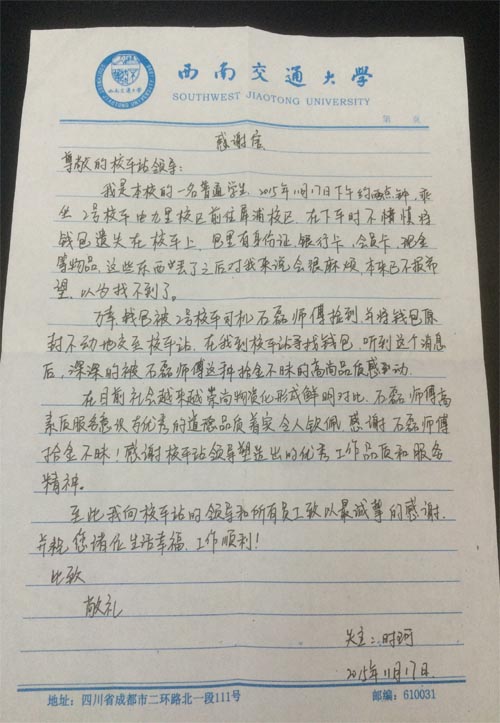 西南交通大学
SOUTHWEST JIAOTONG UNIVERSITY
第 页
感谢信
尊敬的校车站领导：
我是本校的一名普通学生，2015年11月17日下午约两点钟，乘
坐2号校车由九里校区前往犀浦校区，在下车时不慎将
钱包遗失在校车上，里有身份证、银行卡、会员卡、现金
等物品，这些东西丢了之后对我来说会很麻烦，本来已不报希
望，以为找不到了。
万幸钱包被2号校车司机石磊师傅捡到并将钱包原
封不动地交至校车站，在我到校车站寻找钱包，听到这个消息
后，深深的被石磊师傅这种拾金不昧的高尚品质感动。
在目前社会越来越崇尚物质化形式鲜明对比，石磊师傅高
素质服务意识与优秀的道德品质着实令人钦佩，感谢石磊师傅
拾金不昧！感谢校车站领导塑造出的优秀工作品质和服务
精神。
至此我向校车站的领导和所有员工致以最诚挚的感谢，
并祝您诸位生活幸福，工作顺利！
此致
敬礼
失主：时珂
2015年11月17日
地址：四川省成都市二环路北一段111号
邮编：610031